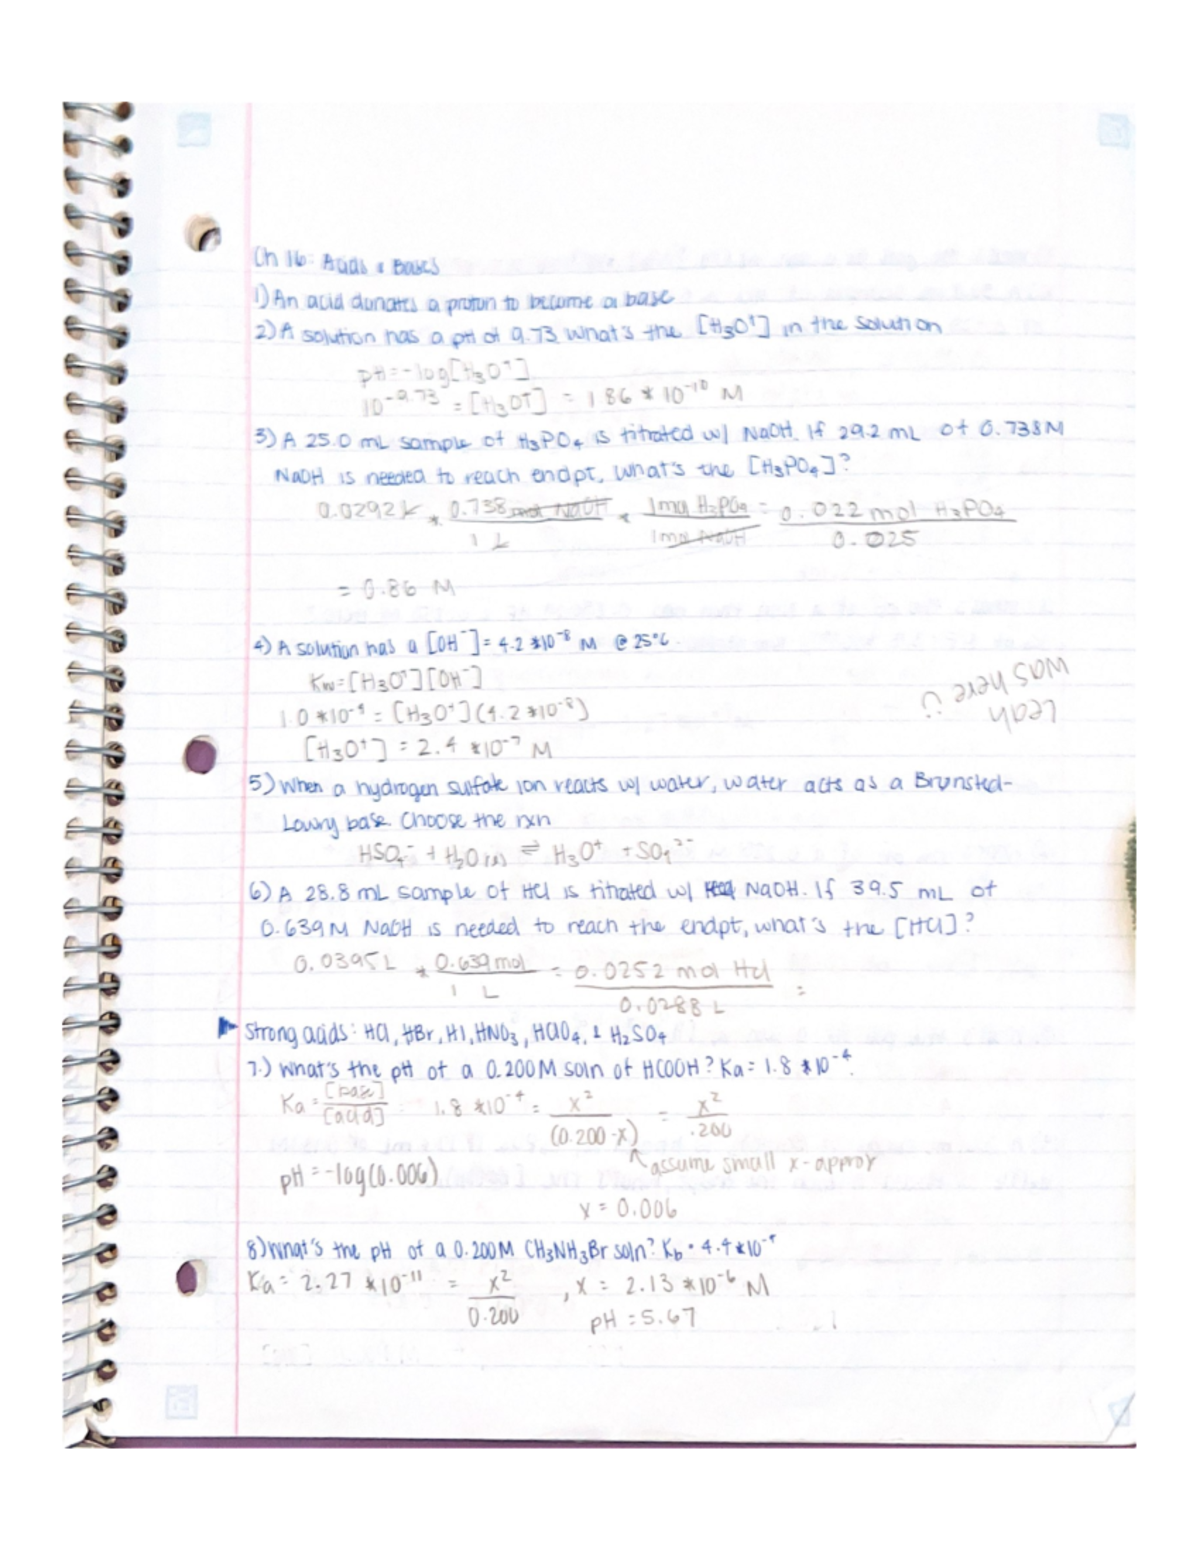 Ch 16: Acids & Bases
1) An acid donates a proton to become a base
2) A solution has a pH of 9.73 What's the [H₃O⁺] in the solution
pH = -log[H₃O⁺]
10^-9.73 = [H₃O⁺] = 1.86 * 10^-10 M
3) A 25.0 mL sample of H₃PO₄ is titrated w/ NaOH. If 29.2 mL of 0.738M
NaOH is needed to reach endpt, what's the [H₃PO₄]?
0.0292 L * 0.738 mol NaOH / 1 L * 1 mol H₃PO₄ / 1 mol NaOH = 0.022 mol H₃PO₄ / 0.025
= 0.86 M
4) A solution has a [OH⁻] = 4.2 * 10^-8 M @ 25°C
Kw = [H₃O⁺][OH⁻]
1.0 * 10^-4 = [H₃O⁺](4.2 * 10^-8)
[H₃O⁺] = 2.4 * 10^-7 M
Leah
was here :)
5) When a hydrogen sulfate ion reacts w/ water, water acts as a Brønsted-
Lowry base. Choose the rxn
HSO₄⁻ + H₂O ⇌ H₃O⁺ + SO₄²⁻
6) A 28.8 mL sample of HCl is titrated w/ NaOH. If 39.5 mL of
0.639M NaOH is needed to reach the endpt, what's the [HCl]?
0.0395 L * 0.639 mol / 1 L = 0.0252 mol HCl / 0.0288 L =
Strong acids: HCl, HBr, HI, HNO₃, HClO₄, & H₂SO₄
7.) What's the pH of a 0.200M soln of HCOOH? Ka = 1.8 * 10^-4.
Ka = [base] / [acid] = 1.8 * 10^-4 = x² / (0.200-x) = x² / .200
assume small x-approx
pH = -log(0.006)
x = 0.006
8) What's the pH of a 0.200M CH₃NH₃Br soln? Kb = 4.4 * 10^-4
Ka = 2.27 * 10^-11 = x² / 0.200, x = 2.13 * 10^-6 M
pH = 5.67